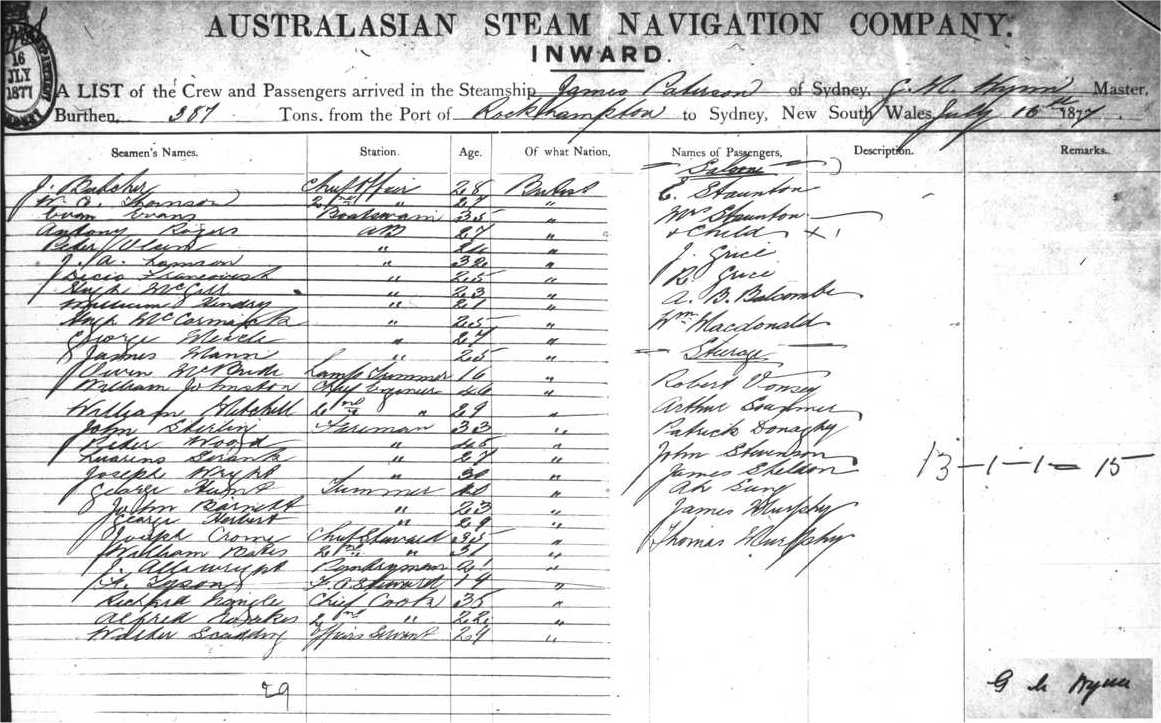 AUSTRALASIAN STEAM NAVIGATION COMPANY.
INWARD.
16
JLY
1877
A LIST of the Crew and Passengers arrived in the Steamship James Paterson of Sydney, Master,
Burthen, 387 Tons, from the Port of Rockhampton to Sydney, New South Wales, July 16th 1877
Seamen's Names. Station. Age. Of what Nation. Names of Passengers. Description. Remarks.
Saloon
J. Butcher Chief Officer 28 British
E. Staunton
W. Thomson 2nd " 27 "
Evan Evans Boatswain 35 "
Mrs Staunton
Antony Rogers AB 27 "
& Child + 1
Peter Olsen " "
J. Grice
J. A. " 32 "
" 25 "
R Grice
Hugh McGill " 23 "
A. B. Balcombe
William Hendry " 21 "
Hugh McCormick " 25 "
Wm Macdonald
George " 27 "
Steerage
James Mann " 25 "
Owen McBride Lamp Trimmer 16 "
William Johnston Chief Engineer 46 "
Robert
William Mitchell 2nd " 29 "
Arthur
John Fireman 33 "
Patrick Donaghy
Peter Wood " 45 "
" 27 "
John Stevenson
Joseph " "
James Sheldon 13 - 1 - 1 = 15
George Hunt Trimmer "
Ah
John Barnett " 23 "
James Murphy
George Herbert " 29 "
Joseph Crome Chief Steward 35 "
Thomas Murphy
William 2nd " 31 "
J. Pantryman 21 "
Tyson Steward "
Richard Chief Cook 35 "
Alfred 2nd " 22 "
Walter Officers Servant 24 "
29